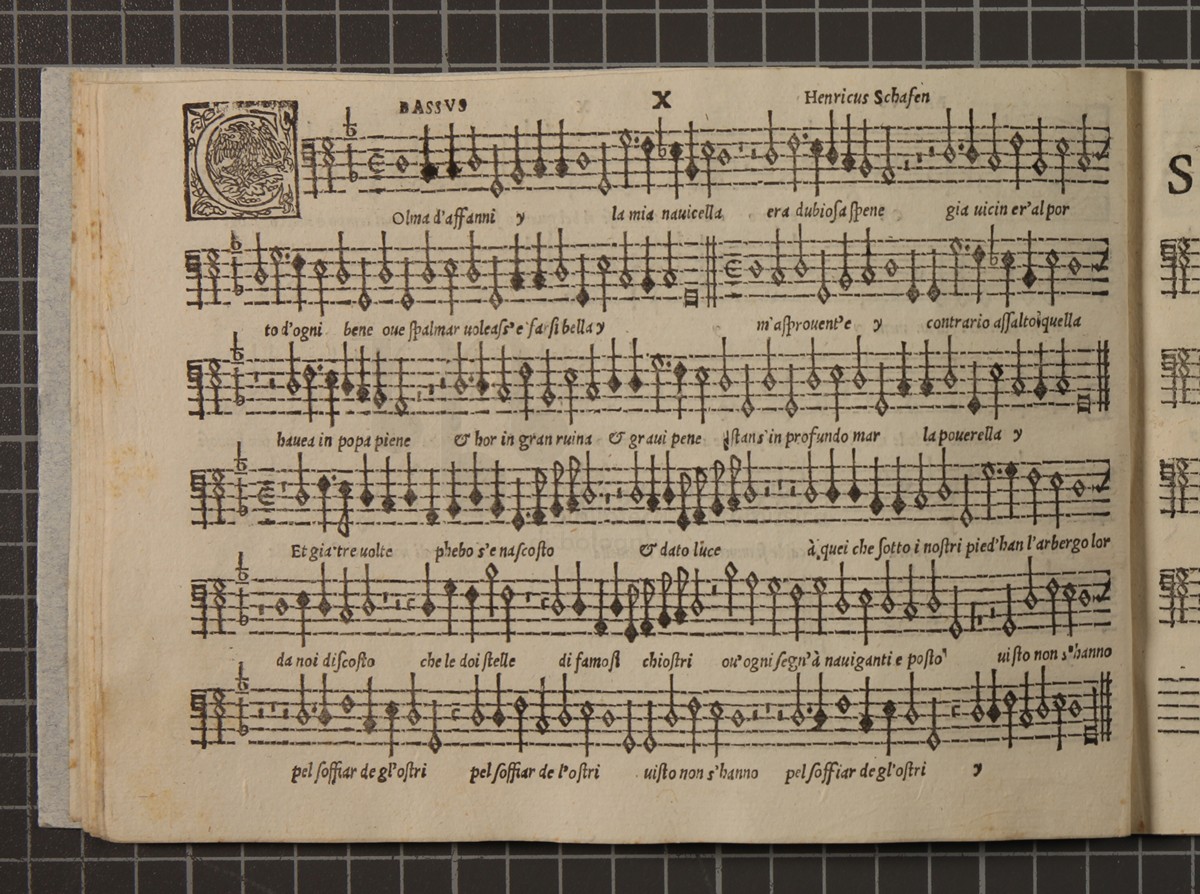 BASSVS X Henricus Schafen
COlma d'affanni y la mia nauicella era dubiosa spene gia uicin er'al por
to d'ogni bene oue spalmar uoleass'e farsi bella y m'asprouent'e y contrario assalto quella
hauea in popa piene & hor in gran ruina & graui pene stans' in profundo mar la pouerella y
Et gia tre uolte phebo s'e nascosto & dato luce à quei che sotto i nostri pied'han l'arbergo lor
da noi discosto che le doi stelle di famosi chiostri ou'ogni segn'à nauiganti e posto uisto non s'hanno
pel soffiar de gl'ostri pel soffiar de l'ostri uisto non s'hanno pel soffiar de gl'ostri y
S